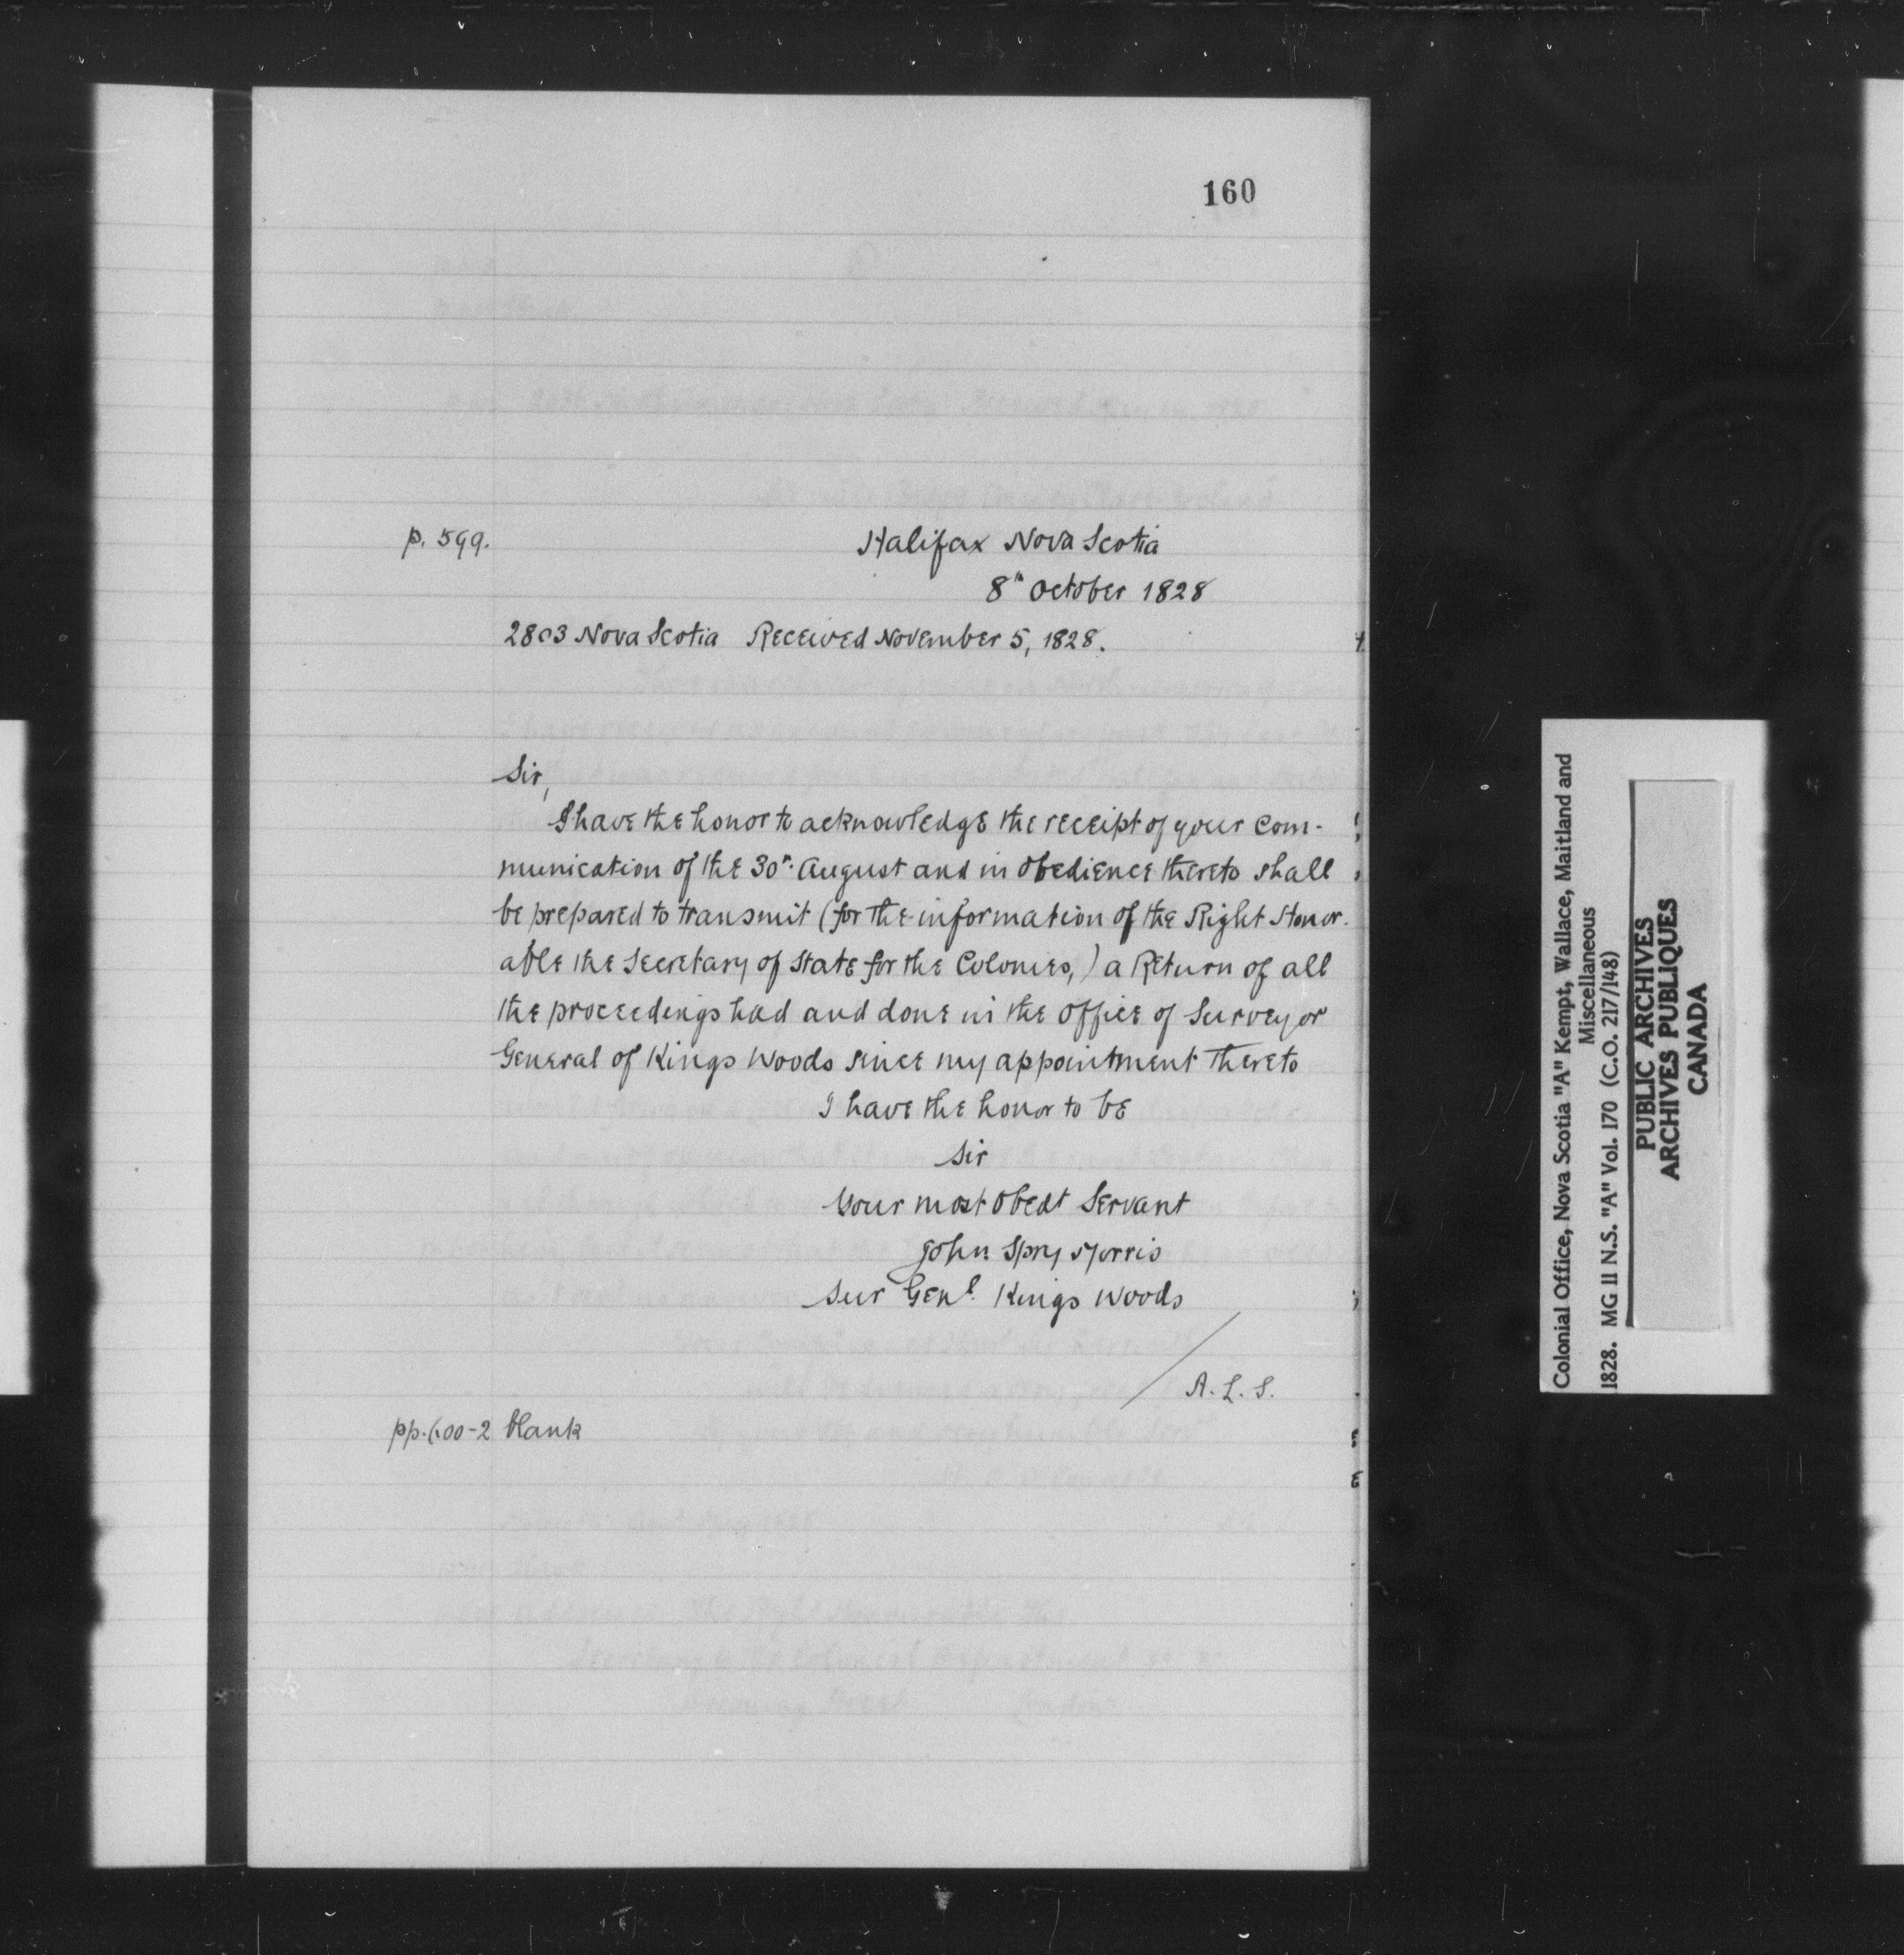 160
p. 599.
Halifax Nova Scotia
8th October 1828
2803 Nova Scotia Received November 5, 1828.
Sir,
I have the honor to acknowledge the receipt of your com-
munication of the 30th August and in obedience thereto shall
be prepared to transmit (for the information of the Right Honor-
able the Secretary of State for the Colonies,) a Return of all
the proceedings had and done in the Office of Surveyor
General of Kings Woods since my appointment thereto
I have the honor to be
Sir
Your most obedt Servant
John Spry Morris
Sur Genl. Kings Woods
A. L. S.
pp. 600-2 blank
Colonial Office, Nova Scotia "A" Kempt, Wallace, Maitland and
Miscellaneous
1828. MG 11 N.S. "A" Vol. 170 (C.O. 217/148)
PUBLIC ARCHIVES
ARCHIVES PUBLIQUES
CANADA